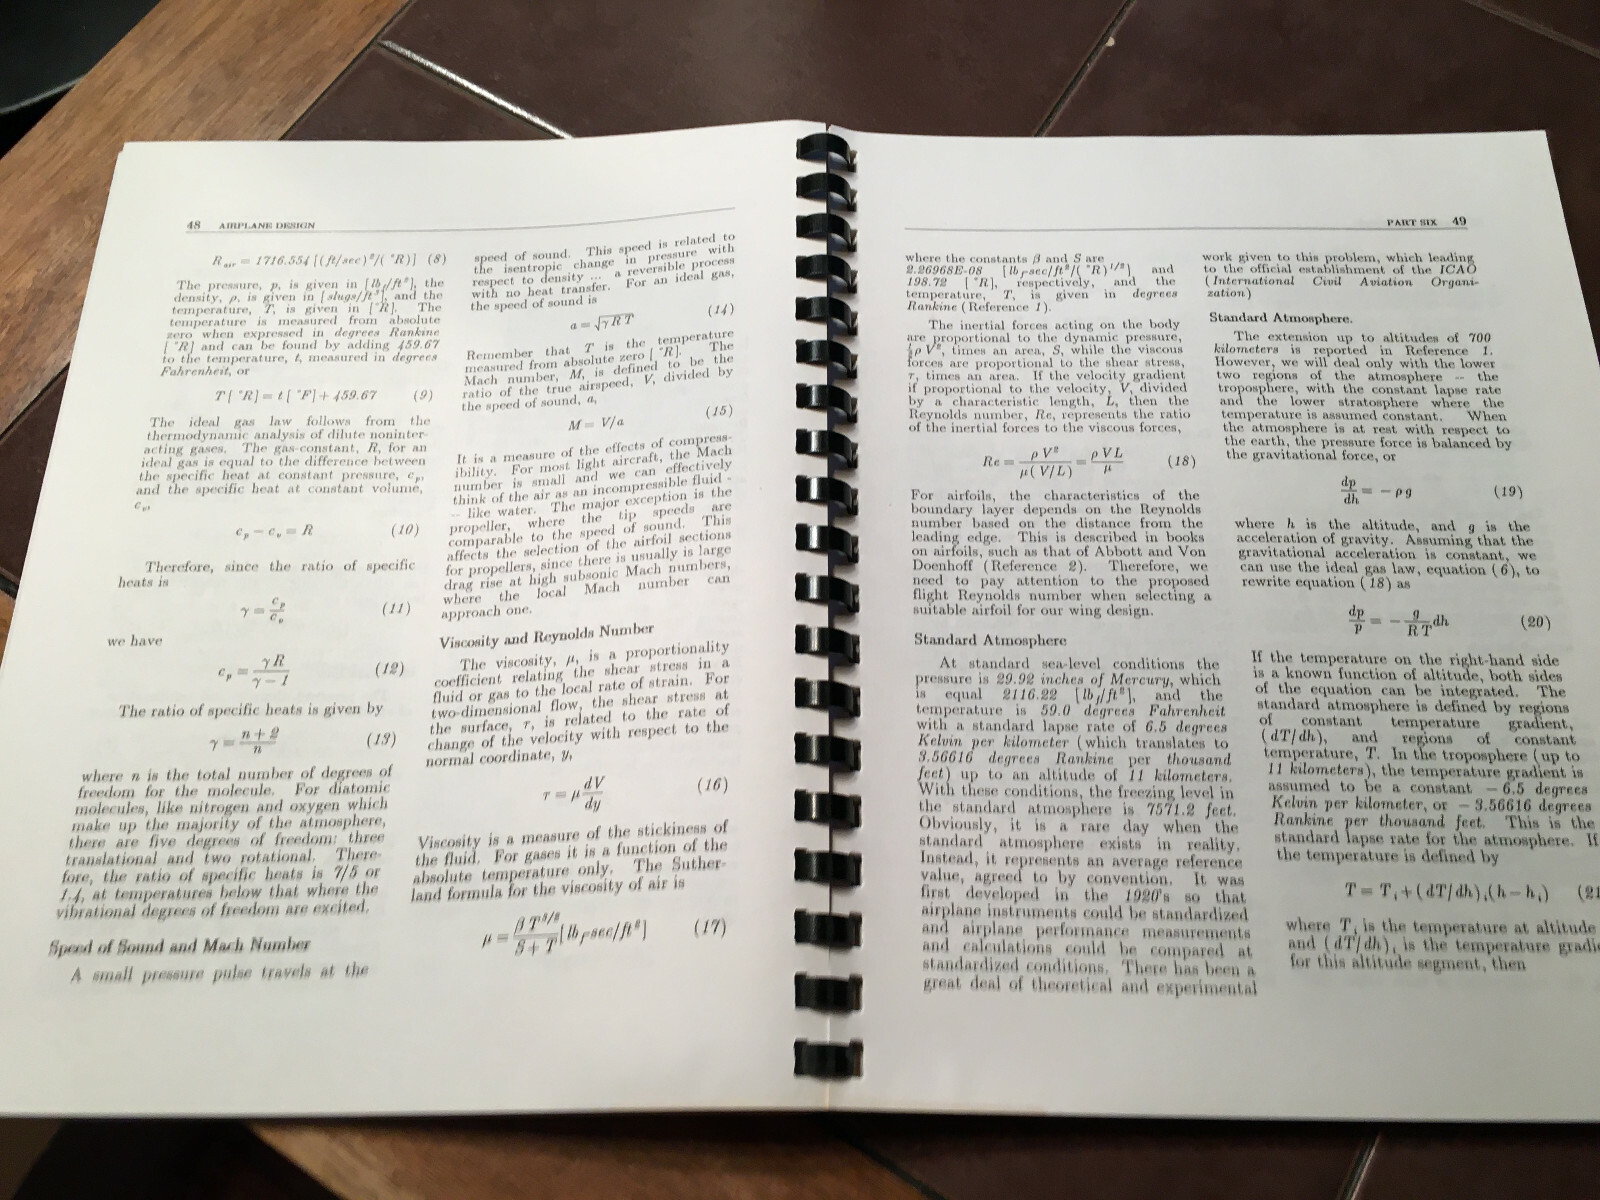 48 AIRPLANE DESIGN
R_air = 1716.554 [(ft/sec)²/(°R)] (8)
The pressure, p, is given in [lb_f/ft²], the
density, ρ, is given in [slugs/ft³], and the
temperature, T, is given in [°R]. The
temperature is measured from absolute
zero when expressed in degrees Rankine
[°R] and can be found by adding 459.67
to the temperature, t, measured in degrees
Fahrenheit, or
T[°R] = t[°F] + 459.67 (9)
The ideal gas law follows from the
thermodynamic analysis of dilute noninter-
acting gases. The gas-constant, R, for an
ideal gas is equal to the difference between
the specific heat at constant pressure, c_p,
and the specific heat at constant volume,
c_v,
c_p − c_v = R (10)
Therefore, since the ratio of specific
heats is
γ = c_p/c_v (11)
we have
c_p = γR/(γ−1) (12)
The ratio of specific heats is given by
γ = (n+2)/n (13)
where n is the total number of degrees of
freedom for the molecule. For diatomic
molecules, like nitrogen and oxygen which
make up the majority of the atmosphere,
there are five degrees of freedom: three
translational and two rotational. There-
fore, the ratio of specific heats is 7/5 or
1.4, at temperatures below that where the
vibrational degrees of freedom are excited.
Speed of Sound and Mach Number
A small pressure pulse travels at the
speed of sound. This speed is related to
the isentropic change in pressure with
respect to density ... a reversible process
with no heat transfer. For an ideal gas,
the speed of sound is
a = √γRT (14)
Remember that T is the temperature
measured from absolute zero [°R]. The
Mach number, M, is defined to be the
ratio of the true airspeed, V, divided by
the speed of sound, a,
M = V/a (15)
It is a measure of the effects of compress-
ibility. For most light aircraft, the Mach
number is small and we can effectively
think of the air as an incompressible fluid -
-- like water. The major exception is the
propeller, where the tip speeds are
comparable to the speed of sound. This
affects the selection of the airfoil sections
for propellers, since there is usually is large
drag rise at high subsonic Mach numbers,
where the local Mach number can
approach one.
Viscosity and Reynolds Number
The viscosity, μ, is a proportionality
coefficient relating the shear stress in a
fluid or gas to the local rate of strain. For
two-dimensional flow, the shear stress at
the surface, τ, is related to the rate of
change of the velocity with respect to the
normal coordinate, y,
τ = μ dV/dy (16)
Viscosity is a measure of the stickiness of
the fluid. For gases it is a function of the
absolute temperature only. The Suther-
land formula for the viscosity of air is
μ = β T^3/2/(S + T) [lb_f-sec/ft²] (17)
PART SIX 49
where the constants β and S are
2.26968E-08 [lb_f-sec/ft²/(°R)^1/2] and
198.72 [°R], respectively, and the
temperature, T, is given in degrees
Rankine (Reference 1).
The inertial forces acting on the body
are proportional to the dynamic pressure,
½ρV², times an area, S, while the viscous
forces are proportional to the shear stress,
τ, times an area. If the velocity gradient
if proportional to the velocity, V, divided
by a characteristic length, L, then the
Reynolds number, Re, represents the ratio
of the inertial forces to the viscous forces,
Re = ρV²/(μ(V/L)) = ρVL/μ (18)
For airfoils, the characteristics of the
boundary layer depends on the Reynolds
number based on the distance from the
leading edge. This is described in books
on airfoils, such as that of Abbott and Von
Doenhoff (Reference 2). Therefore, we
need to pay attention to the proposed
flight Reynolds number when selecting a
suitable airfoil for our wing design.
Standard Atmosphere
At standard sea-level conditions the
pressure is 29.92 inches of Mercury, which
is equal 2116.22 [lb_f/ft²], and the
temperature is 59.0 degrees Fahrenheit
with a standard lapse rate of 6.5 degrees
Kelvin per kilometer (which translates to
3.56616 degrees Rankine per thousand
feet) up to an altitude of 11 kilometers.
With these conditions, the freezing level in
the standard atmosphere is 7571.2 feet.
Obviously, it is a rare day when the
standard atmosphere exists in reality.
Instead, it represents an average reference
value, agreed to by convention. It was
first developed in the 1920's so that
airplane instruments could be standardized
and airplane performance measurements
and calculations could be compared at
standardized conditions. There has been a
great deal of theoretical and experimental
work given to this problem, which leading
to the official establishment of the ICAO
(International Civil Aviation Organi-
zation)
Standard Atmosphere.
The extension up to altitudes of 700
kilometers is reported in Reference 1.
However, we will deal only with the lower
two regions of the atmosphere -- the
troposphere, with the constant lapse rate
and the lower stratosphere where the
temperature is assumed constant. When
the atmosphere is at rest with respect to
the earth, the pressure force is balanced by
the gravitational force, or
dp/dh = − ρg (19)
where h is the altitude, and g is the
acceleration of gravity. Assuming that the
gravitational acceleration is constant, we
can use the ideal gas law, equation (6), to
rewrite equation (18) as
dp/p = − g/(RT) dh (20)
If the temperature on the right-hand side
is a known function of altitude, both sides
of the equation can be integrated. The
standard atmosphere is defined by regions
of constant temperature gradient,
(dT/dh), and regions of constant
temperature, T. In the troposphere (up to
11 kilometers), the temperature gradient is
assumed to be a constant −6.5 degrees
Kelvin per kilometer, or −3.56616 degrees
Rankine per thousand feet. This is the
standard lapse rate for the atmosphere. If
the temperature is defined by
T = T_i + (dT/dh)_i(h − h_i) (21
where T_i is the temperature at altitude
and (dT/dh)_i is the temperature gradie
for this altitude segment, then